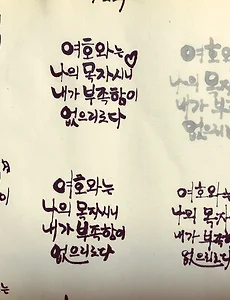 여호와는
나의 목자시니
내가 부족함이
없으리로다
여호와는
나의 목자
내가 부
없으리
여호와는
나의 목자시니
내가 부족함이
없으리로다
여호와는
나의 목자
내가 부족
없으리로다